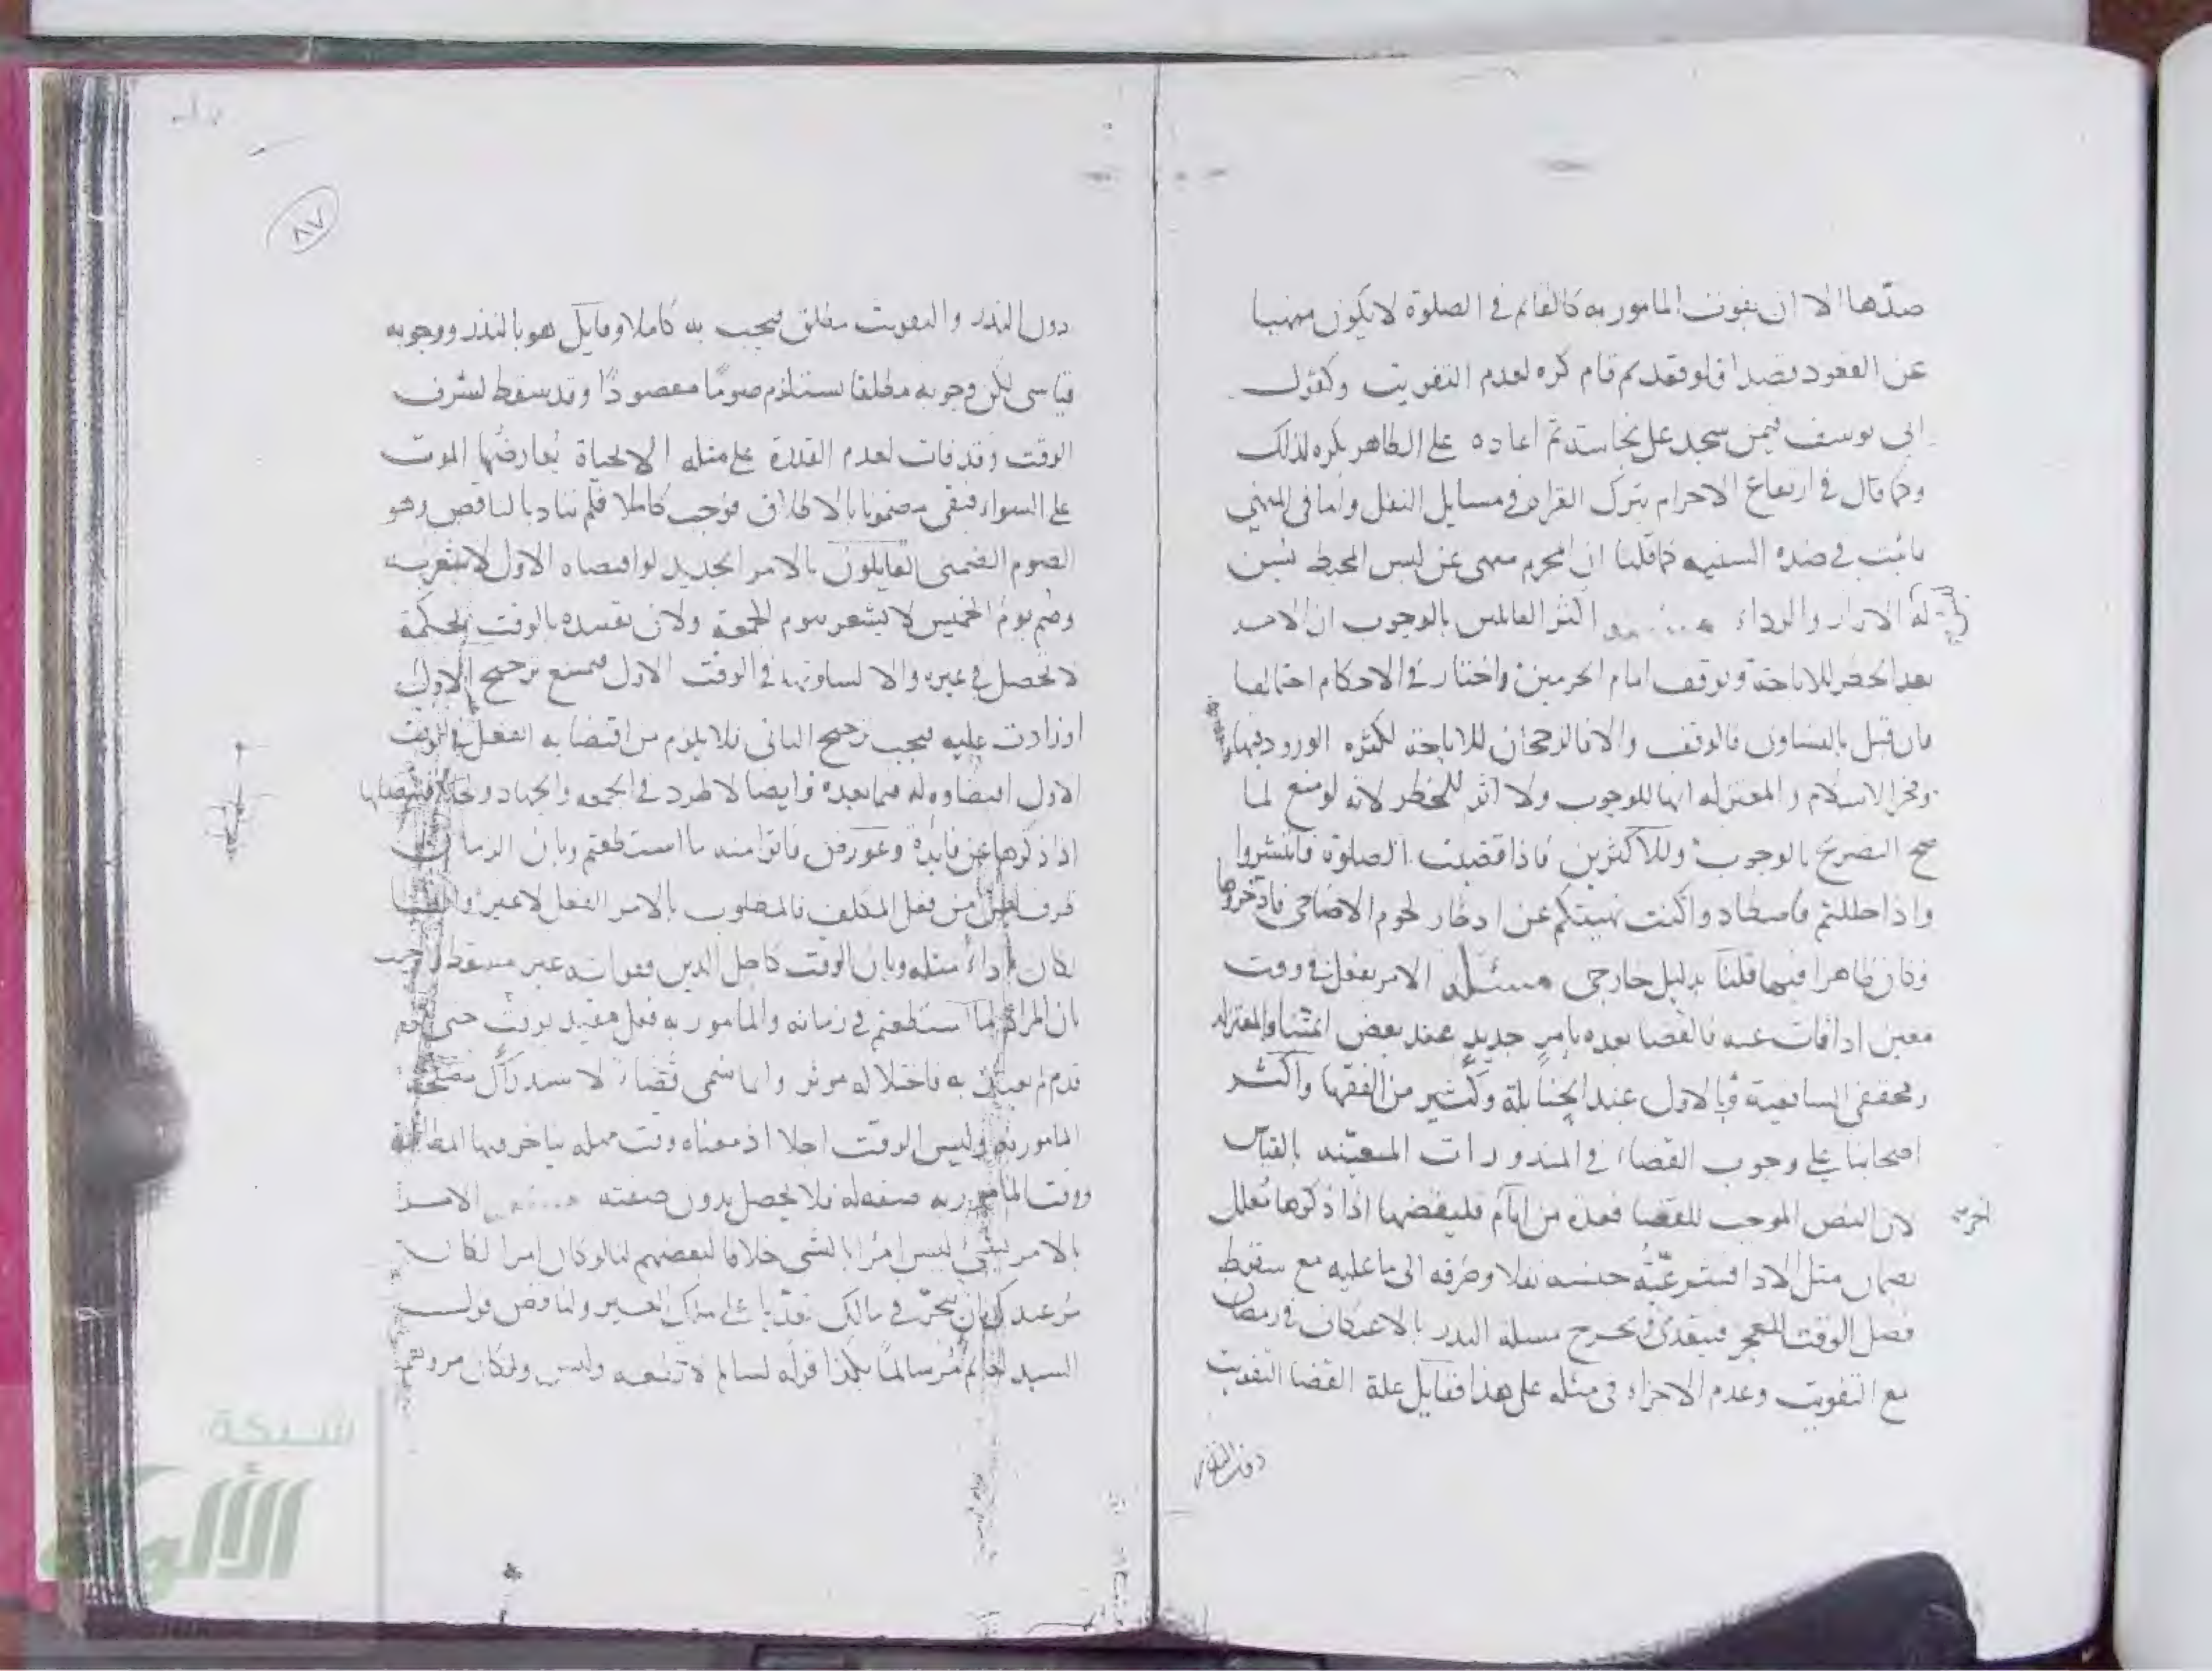 ضدها الا ان يفوت المامور به كالقائم في الصلوة لا يكون منهيا
عن القعود قصدا فلو قعد ثم قام كره لعدم التفويت وكقول
ابي يوسف فيمن سجد على نجاسة ثم اعاده على الطاهر يكره لذلك
وكما قال في ارتفاع الاحرام بترك القراة في مسايل النفل واما في النهي
ما ثبت في ضده السنيه كما قلنا ان المحرم منهى عن لبس المخيط تبين
له الازار والرداء اكثر القائلين بالوجوب ان الامر
بعد الحظر للاباحة وتوقف امام الحرمين واختار في الاحكام احتمالها
فان قيل بالتساوى فالوقف والا فالرجحان للاباحة لكثرة الورود فيها
وفخر الاسلام والمعتزله انها للوجوب ولا اثر للحظر لانه لو منع لما
صح التصريح بالوجوب وللاكثرين فاذا قضيت الصلوة فانتشروا
واذا حللتم فاصطادوا كنت نهيتكم عن ادخار لحوم الاضاحي فادخروها
وكان ظاهرا فيها قلنا بدليل خارجى مسئله الامر بفعل في وقت
معين اذا فات عنه فالقضا بعده بامر جديد عند بعض ائمتنا والمعتزله
ومحققى الشافعية وبالاول عند الحنابلة وكثير من الفقها واكثر
اصحابنا على وجوب القضاء في المنذورات المتعينه بالقياس
لان النص الموجب للقضا فعدة من ايام فليقضها اذا ذكرها معلل
بضمان مثل الادا جنسه نفلا وصرفه الى ما عليه مع سقوط
فضل الوقت للعجز فيتعدى تخرج مسلة النذر بالاعتكاف في رمضان
مع التفويت وعدم الاجزاء في مثله على هذا فقايل علة القضا التفويت
دون النذر
٨٧
دون النذر والتفويت مطلق فيجب به كاملا وقايل هو بالنذر ووجوبه
قياسى لكن وجوبه مطلقا يستلزم صوما مقصودا وقد سقط لشرف
الوقت وقد فات لعدم القدرة على مثله الا لحياة يعارضها الموت
على السواء فبقى مضمونا بالاطلاق فوجب كاملا فلم يتاد بالناقص وهو
الصوم الضمنى القايلون بالامر الجديد لو اقتضاه الاول لاشعر به
وصم يوم الخميس لا يشعر بيوم الجمعة ولان تقييده بالوقت لحكمة
لا تحصل في غيره والا لساوته في الوقت الاول فيمتنع ترجيح الاول
او زادت عليه فيجب ترجيح الثانى فلا يلزم من اقتضا به الفعل في الوقت
الاول اقتضاوه له فيما بعده وايضا لاطرد في الجمعه والجهاد فليصلها
اذا ذكرها عن فايدة وعورض فاتوا منه ما استطعتم وبان الزمان
ظرف من فعل المكلف فالمطلوب بالامر الفعل لا غير
لكان اداء مثله وبان الوقت كاجل الدين ففواته غير مسقط واجيب
بان المراد لما استطعتم في زمانه والمامور به فعل مقيد بوقت حتى لو
قدم لم يعتد به فاختلاله موثر وانما سمى قضاء لاستدراك مصلحة
المامور به وليس الوقت اجلا اذ معناه وقت مهلة يتاخر فيها المطالبة
ووقت المامور به صفة له فلا يحصل بدون صفته الامر
بالامر بشئ ليس امرا بالشى خلافا لبعضهم لنا لو كان امرا لكان
مر عبدك بان يتجر في مالك تعديا على ملك الغير ولناقض قول
السيد لغانم مر سالما بكذا قوله لسالم لا تطعه وليس
شبكة
الألوكة